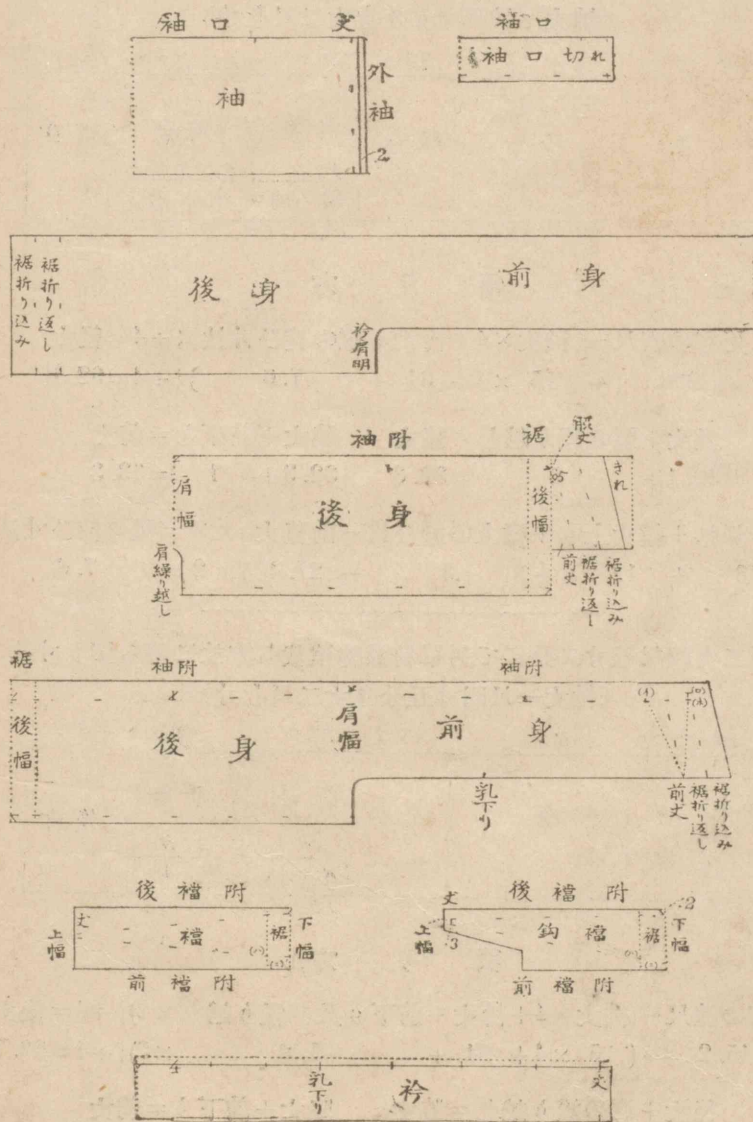 袖口 丈
袖
外袖
2
袖口
袖口切れ
裾折り込み
裾折り返し
後身
前身
衿肩明
袖附
裾
脇丈
肩幅
後身
後幅
95
きれ
肩繰り越し
前丈
裾折り返し
裾折り込み
裾
袖附
袖附
後幅
後身
肩幅
前身
(イ)
(ロ)
乳下り
前丈
裾折り返し
裾折り込み
後襠附
丈
上幅
襠
裾
下幅
前襠附
後襠附
丈
2
上幅
3
鈎襠
裾
下幅
前襠附
4
乳下り
衿
丈